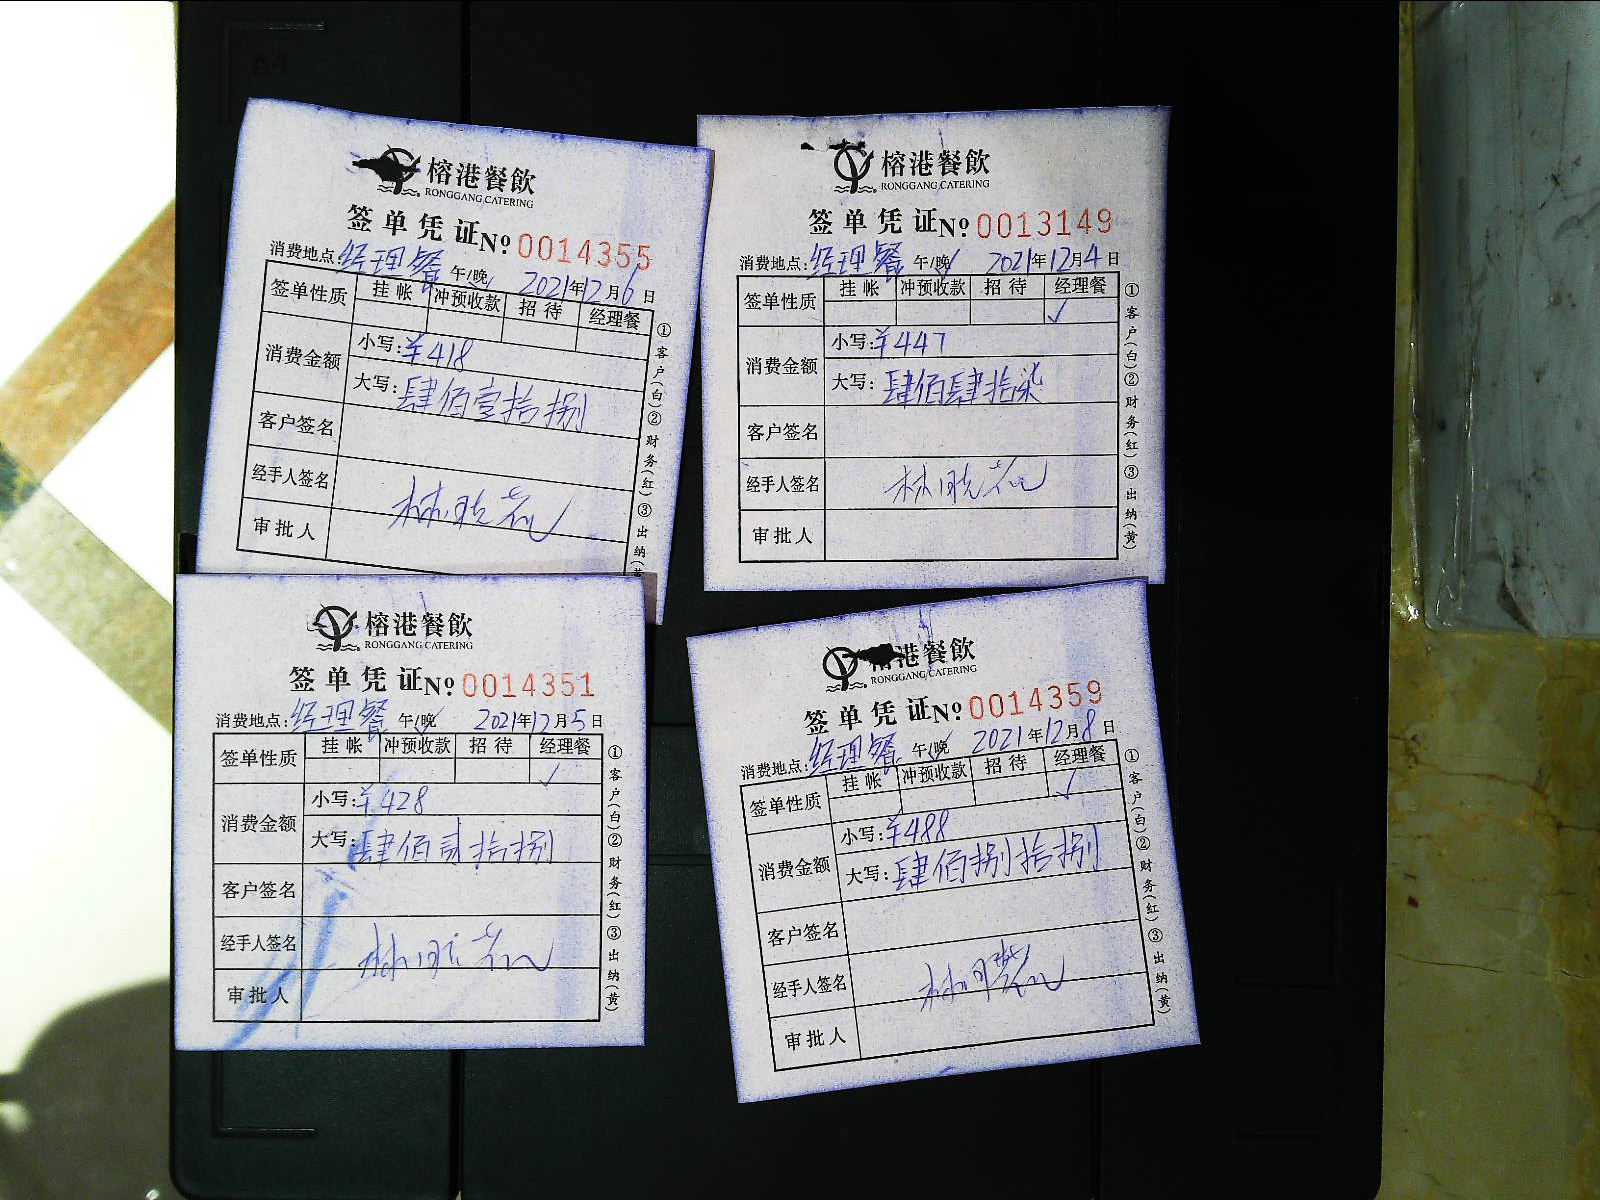 榕港餐飲
RONGGANG CATERING
签单凭证 Nº 0014355
消费地点:经理餐 午/晚✓ 2021年12月6日
签单性质 挂帐 冲预收款 招待 经理餐
消费金额 小写:¥418
大写:肆佰壹拾捌
客户签名
经手人签名
审批人
①客户(白)②财务(红)③出纳(黄
榕港餐飲
RONGGANG CATERING
签单凭证 Nº 0013149
消费地点:经理餐 午/晚✓ 2021年12月4日
签单性质 挂帐 冲预收款 招待 经理餐
✓
消费金额 小写:¥447
大写:肆佰肆拾柒
客户签名
经手人签名
审批人
①客户(白)②财务(红)③出纳(黄)
榕港餐飲
RONGGANG CATERING
签单凭证 Nº 0014351
消费地点:经理餐 午/晚✓ 2021年12月5日
签单性质 挂帐 冲预收款 招待 经理餐
✓
消费金额 小写:¥428
大写:肆佰贰拾捌
客户签名
经手人签名
审批人
①客户(白)②财务(红)③出纳(黄)
港餐飲
RONGGANG CATERING
签单凭证 Nº 0014359
消费地点:经理餐 午/晚✓ 2021年12月8日
签单性质 挂帐 冲预收款 招待 经理餐
✓
消费金额 小写:¥488
大写:肆佰捌拾捌
客户签名
经手人签名
审批人
①客户(白)②财务(红)③出纳(黄)